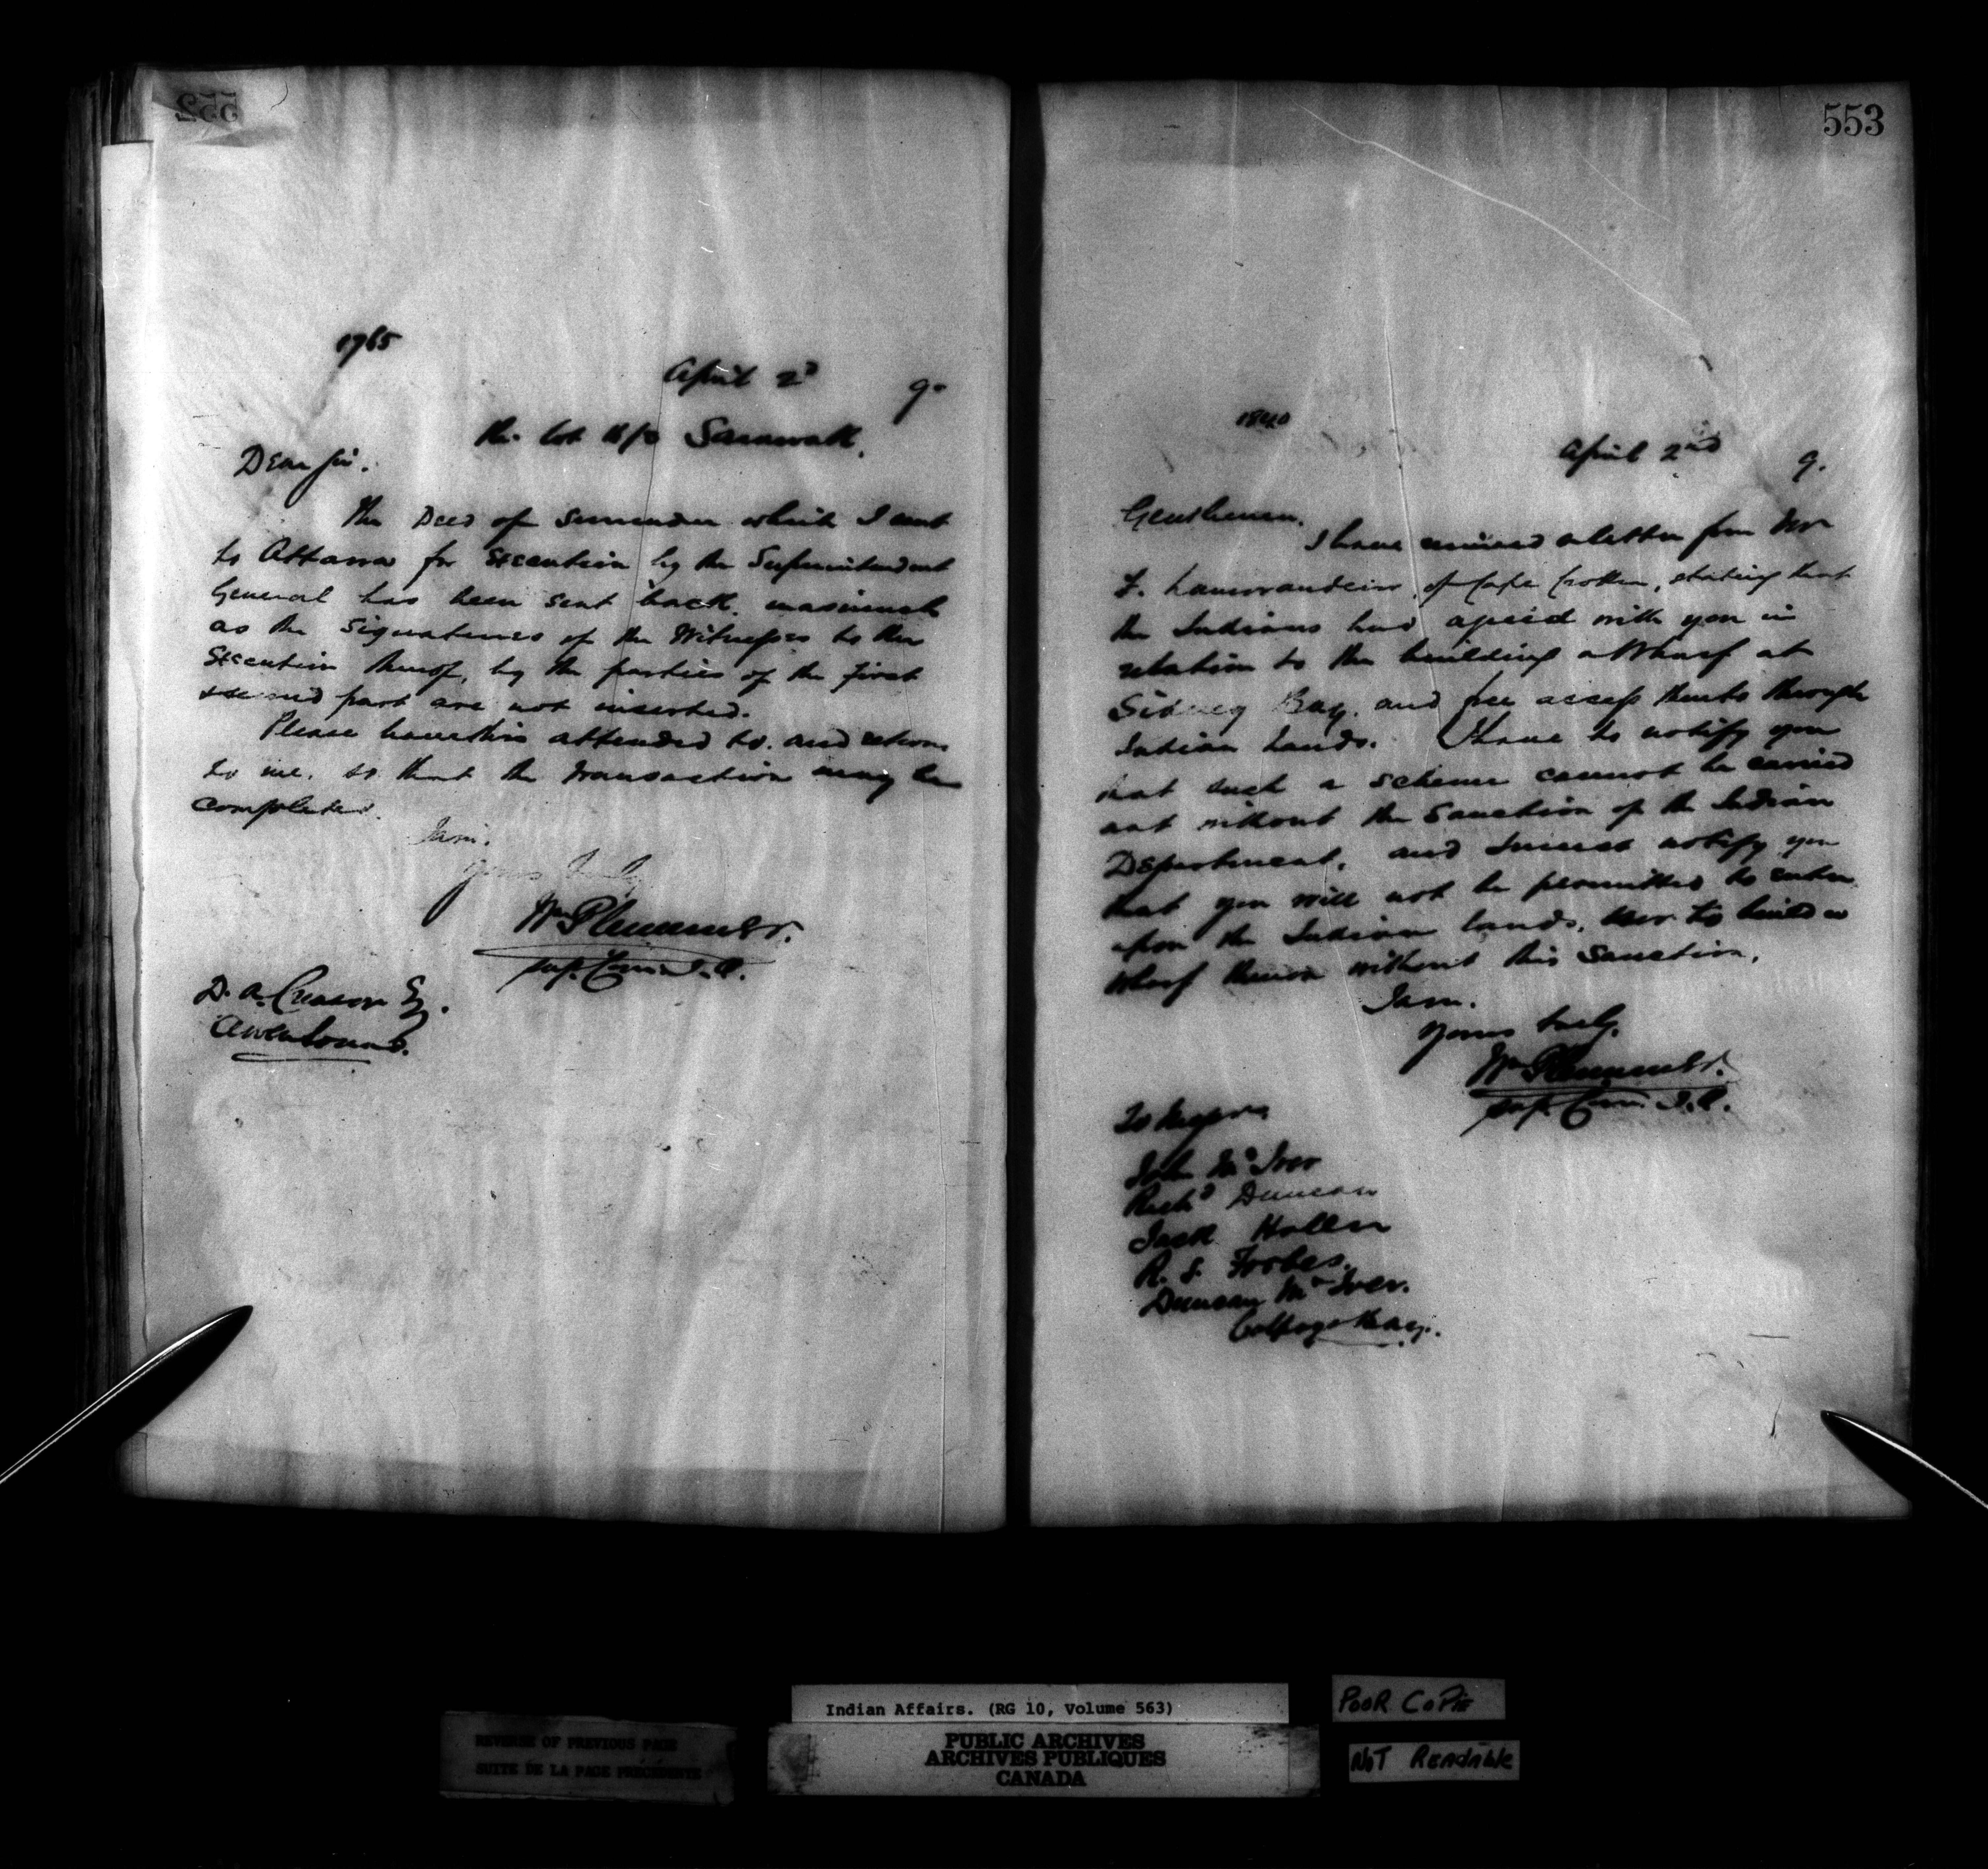 552
1965
April 2d 9.
Re. Lot 16/8 Sarawak.
Dear Sir.
The Deed of Surrender which I sent
to Ottawa for Execution by the Superintendent
General has been sent back, inasmuch
as the Signatures of the Witnesses to the
Execution thereof, by the parties of the first
& second part are not inserted.
Please have this attended to. and return
to me. so that the transaction may be
completed.
I am.
Yours truly
Wm Plummer.
Supt. Com. I.A.
D. A. Creasor Esq.
Owen Sound.
553
1840
April 2nd 9.
Gentlemen.
I have received a letter from Mr
F. Lamorandiere, of Cape Croker, stating that
the Indians had agreed with you in
relation to the building a Wharf at
Sidney Bay. and free access thereto through
Indian Lands. I have to notify you
that such a scheme cannot be carried
out without the Sanction of the Indian
Department, and I must notify you
that you will not be permitted to enter
upon the Indian lands, nor to build a
wharf thereon without this Sanction.
I am.
Yours truly.
Wm Plummer.
Supt. Com. I.A.
To Messrs
John McIver
Richd Duncan
Jack Hollen
R. S. Forbes.
Duncan McIver.
Colpoys Bay.
REVERSE OF PREVIOUS PAGE
SUITE DE LA PAGE PRÉCÉDENTE
Indian Affairs. (RG 10, Volume 563)
PUBLIC ARCHIVES
ARCHIVES PUBLIQUES
CANADA
POOR COPIE
NOT READABLE